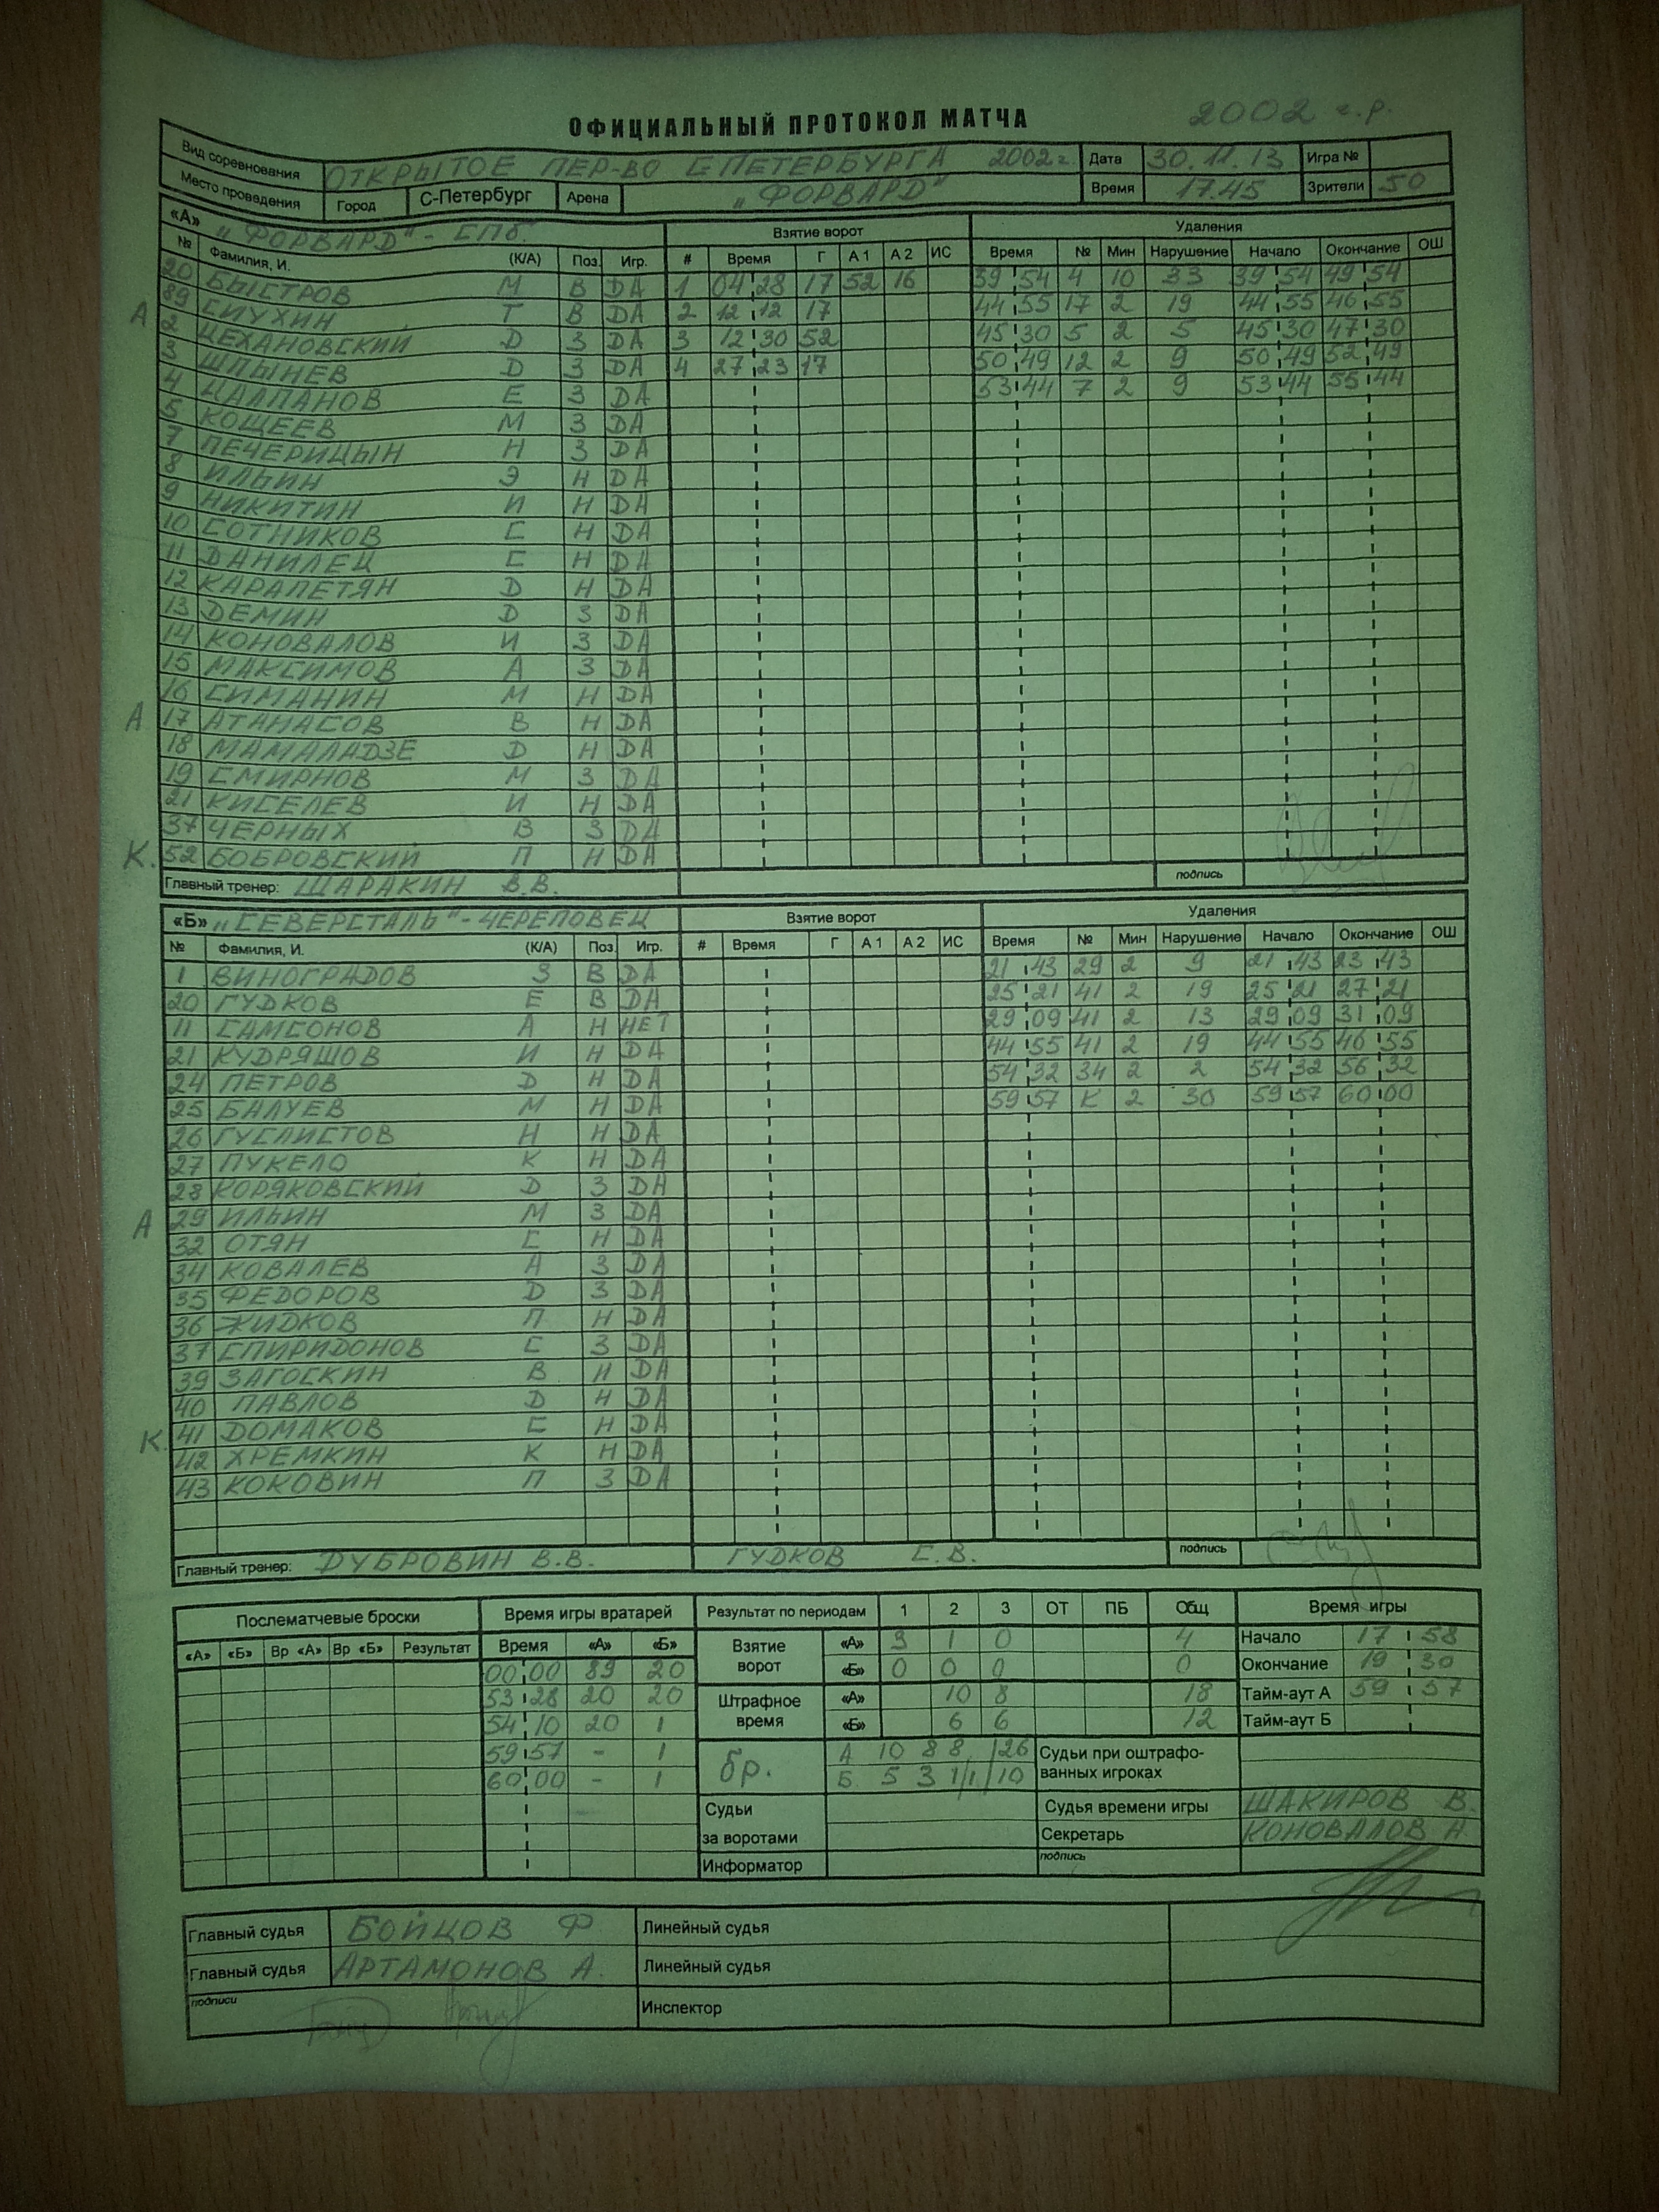 2002 г.р.
ОФИЦИАЛЬНЫЙ ПРОТОКОЛ МАТЧА
Вид соревнования ОТКРЫТОЕ ПЕР-ВО С ПЕТЕРБУРГА 2002г. Дата 30.11.13 Игра №
Место проведения Город С-Петербург Арена „ФОРВАРД" Время 17.45 Зрители 50
«А» „ФОРВАРД"- СПб. Взятие ворот Удаления
№ Фамилия, И. (К/А) Поз. Игр. # Время Г А 1 А 2 ИС Время № Мин Нарушение Начало Окончание ОШ
20 БЫСТРОВ М В DА 1 04 28 17 52 16 39 54 4 10 33 39 54 49 54
А 89 СИУХИН Т В DА 2 12 12 17 44 55 17 2 19 44 55 46 55
2 ЦЕХАНОВСКИЙ D З DА 3 12 30 52 45 30 5 2 5 45 30 47 30
3 ШПЫНЕВ D З DА 4 27 23 17 50 49 12 2 9 50 49 52 49
4 ЦАЛПАНОВ Е З DА 53 44 7 2 9 53 44 55 44
5 КОЩЕЕВ М З DА
7 ПЕЧЕРИЦЫН Н З DА
8 ИЛЬИН Э Н DА
9 НИКИТИН И Н DА
10 СОТНИКОВ С Н DА
11 DАНИЛЕЦ С Н DА
12 КАРАПЕТЯН D Н DА
13 DЕМИН D З DА
14 КОНОВАЛОВ И З DА
15 МАКСИМОВ А З DА
16 СИМАНИН М Н DА
А 17 АТАНАСОВ В Н DА
18 МАМАЛАDЗЕ D Н DА
19 СМИРНОВ М З DА
21 КИСЕЛЕВ И Н DА
37 ЧЕРНЫХ В З DА
К. 52 БОБРОВСКИЙ П Н DА
Главный тренер: ШАРАКИН В.В. подпись
«Б» „СЕВЕРСТАЛЬ"-ЧЕРЕПОВЕЦ Взятие ворот Удаления
№ Фамилия, И. (К/А) Поз. Игр. # Время Г А 1 А 2 ИС Время № Мин Нарушение Начало Окончание ОШ
1 ВИНОГРАDОВ З В DА 21 43 29 2 9 21 43 23 43
20 ГУDКОВ Е В DА 25 21 41 2 19 25 21 27 21
11 САМСОНОВ А Н НЕТ 29 09 41 2 13 29 09 31 09
21 КУDРЯШОВ И Н DА 44 55 41 2 19 44 55 46 55
24 ПЕТРОВ D Н DА 54 32 34 2 2 54 32 56 32
25 БАЛУЕВ М Н DА 59 57 К 2 30 59 57 60 00
26 ГУСЛИСТОВ Н Н DА
27 ПУКЕЛО К Н DА
28 КОРЯКОВСКИЙ D З DА
А 29 ИЛЬИН М З DА
32 ОТЯН С Н DА
34 КОВАЛЕВ А З DА
35 ФЕDОРОВ D З DА
36 ЖИDКОВ П Н DА
37 СПИРИDОНОВ С З DА
39 ЗАГОСКИН В Н DА
40 ПАВЛОВ D Н DА
К. 41 DОМАКОВ Е Н DА
42 ХРЕМКИН К Н DА
43 КОКОВИН П З DА
Главный тренер: DУБРОВИН В.В. ГУDКОВ С.В. подпись
Послематчевые броски Время игры вратарей Результат по периодам 1 2 3 ОТ ПБ Общ Время игры
«А» «Б» Вр «А» Вр «Б» Результат Время «А» «Б» Взятие ворот «А» 3 1 0 4 Начало 17 58
00 00 89 20 «Б» 0 0 0 0 Окончание 19 30
53 28 20 20 Штрафное время «А» 10 8 18 Тайм-аут А 59 57
54 10 20 1 «Б» 6 6 12 Тайм-аут Б
59 57 - 1 бр. А 10 8 8 /26 Судьи при оштрафованных игроках
60 00 - 1 Б 5 3 1/1/10
Судьи за воротами Судья времени игры ШАКИРОВ В.
Секретарь КОНОВАЛОВ А
Информатор подпись
Главный судья БОЙЦОВ Ф. Линейный судья
Главный судья АРТАМОНОВ А. Линейный судья
подписи Инспектор